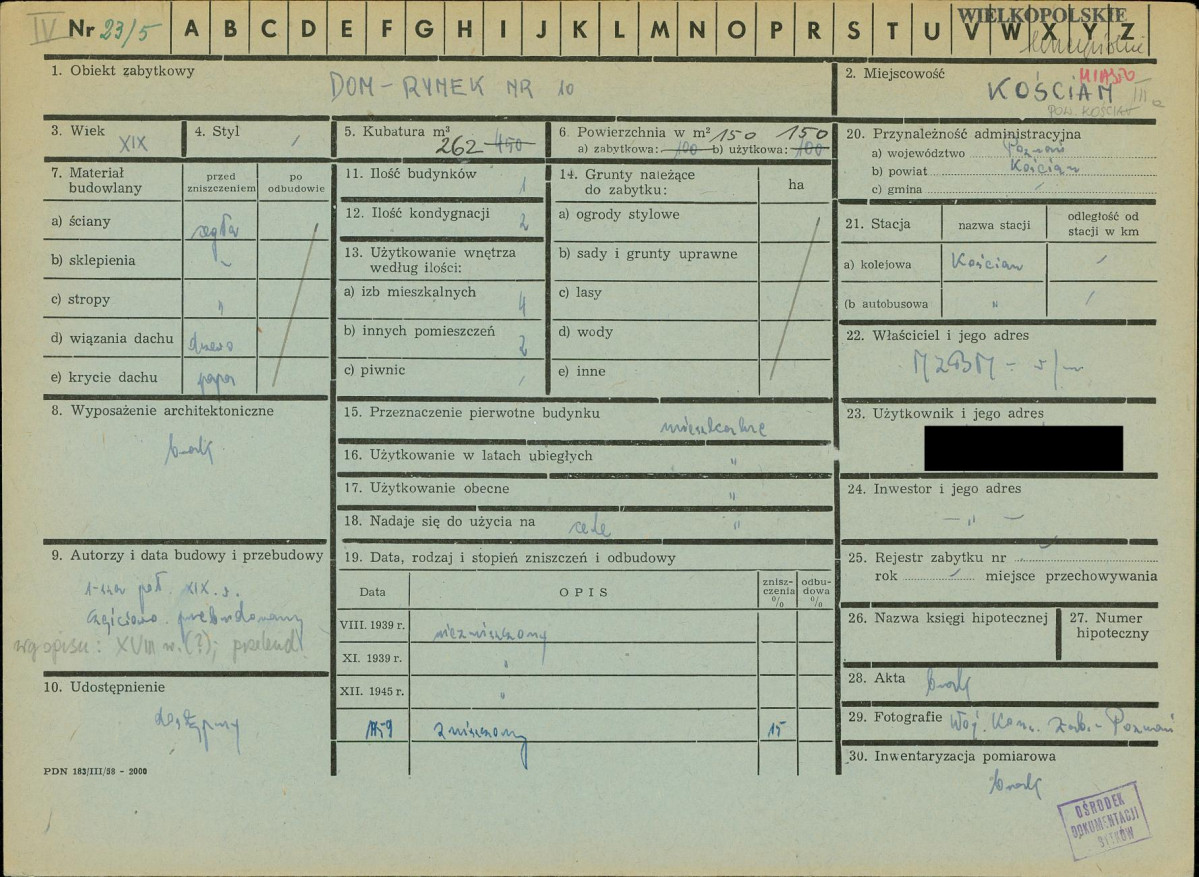 IV Nr 23/5 A B C D E F G H I J K L M N O P R S T U V W X Y Z
WIELKOPOLSKIE
1. Obiekt zabytkowy
DOM - RYNEK NR 10
2. Miejscowość
MIASTO
KOŚCIAN III a
POW. KOŚCIAN
3. Wiek
XIX
4. Styl
/
5. Kubatura m³
262 450
6. Powierzchnia w m² 150 150
a) zabytkowa: 100 b) użytkowa: 100
7. Materiał budowlany
przed zniszczeniem
po odbudowie
a) ściany cegła
b) sklepienia -
c) stropy "
d) wiązania dachu drewo
e) krycie dachu papa
8. Wyposażenie architektoniczne
brak
9. Autorzy i data budowy i przebudowy
1-sza poł. XIX. w.
częściowo przebudowany
wg opisu: XVIII w. (?); przebud.
10. Udostępnienie
dostępny
PDN 183/III/58 - 2000
11. Ilość budynków 1
12. Ilość kondygnacji 2
13. Użytkowanie wnętrza
według ilości:
a) izb mieszkalnych 4
b) innych pomieszczeń 2
c) piwnic /
14. Grunty należące
do zabytku:
ha
a) ogrody stylowe
b) sady i grunty uprawne
c) lasy
d) wody
e) inne
15. Przeznaczenie pierwotne budynku
mieszkalne
16. Użytkowanie w latach ubiegłych "
17. Użytkowanie obecne "
18. Nadaje się do użycia na cele "
19. Data, rodzaj i stopień zniszczeń i odbudowy
Data
OPIS
znisz-
czenia
%
odbu-
dowa
%
VIII. 1939 r. niezniszczony
XI. 1939 r. "
XII. 1945 r. "
1959 zniszczony 15
20. Przynależność administracyjna
a) województwo Poznań
b) powiat Kościan
c) gmina /
21. Stacja
nazwa stacji
odległość od
stacji w km
a) kolejowa Kościan /
(b autobusowa " /
22. Właściciel i jego adres
MZBM - w/m
23. Użytkownik i jego adres
24. Inwestor i jego adres
- " -
25. Rejestr zabytku nr
rok / miejsce przechowywania
26. Nazwa księgi hipotecznej
27. Numer
hipoteczny
28. Akta brak
29. Fotografie Woj. Kons. Zab. - Poznań
30. Inwentaryzacja pomiarowa
brak
OŚRODEK
DOKUMENTACJI
ZABYTKÓW